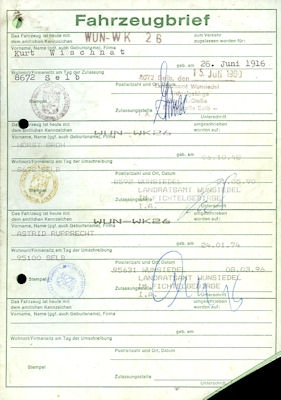 Fahrzeugbrief
Das Fahrzeug ist heute mit
dem amtlichen Kennzeichen WUN-WK 26 zum Verkehr
zugelassen worden für:
Vorname, Name (ggf. auch Geburtsname), Firma
Kurt Wischnat geb. am 26. Juni 1916
Wohnort/Firmensitz am Tag der Zulassung Postleitzahl und Ort, Datum
8672 Selb 8672 Selb, den
Stempel
Zulassungsstelle
Unterschrift
Das Fahrzeug ist heute mit
dem amtlichen Kennzeichen WUN-WK26 umgeschrieben worden für:
Vorname, Name (ggf. auch Geburtsname), Firma
geb. am
Wohnort/Firmensitz am Tag der Umschreibung Postleitzahl und Ort, Datum
8672 WUNSIEDEL
LANDRATSAMT WUNSIEDEL
Zulassungsstelle IM FICHTELGEBIRGE
I.A. Unterschrift
Das Fahrzeug ist heute mit
dem amtlichen Kennzeichen WUN-WK26 umgeschrieben worden für:
Vorname, Name (ggf. auch Geburtsname), Firma
ASTRID RUPPRECHT geb. am 24.01.74
Wohnort/Firmensitz am Tag der Umschreibung Postleitzahl und Ort, Datum
95100 SELB 95631 WUNSIEDEL 08.03.96
Stempel LANDRATSAMT WUNSIEDEL
Zulassungsstelle IM FICHTELGEBIRGE
I.A. Unterschrift
Das Fahrzeug ist heute mit
dem amtlichen Kennzeichen umgeschrieben worden für:
Vorname, Name (ggf. auch Geburtsname), Firma
geb. am
Wohnort/Firmensitz am Tag der Umschreibung Postleitzahl und Ort, Datum
Stempel
Zulassungsstelle
Unterschrift